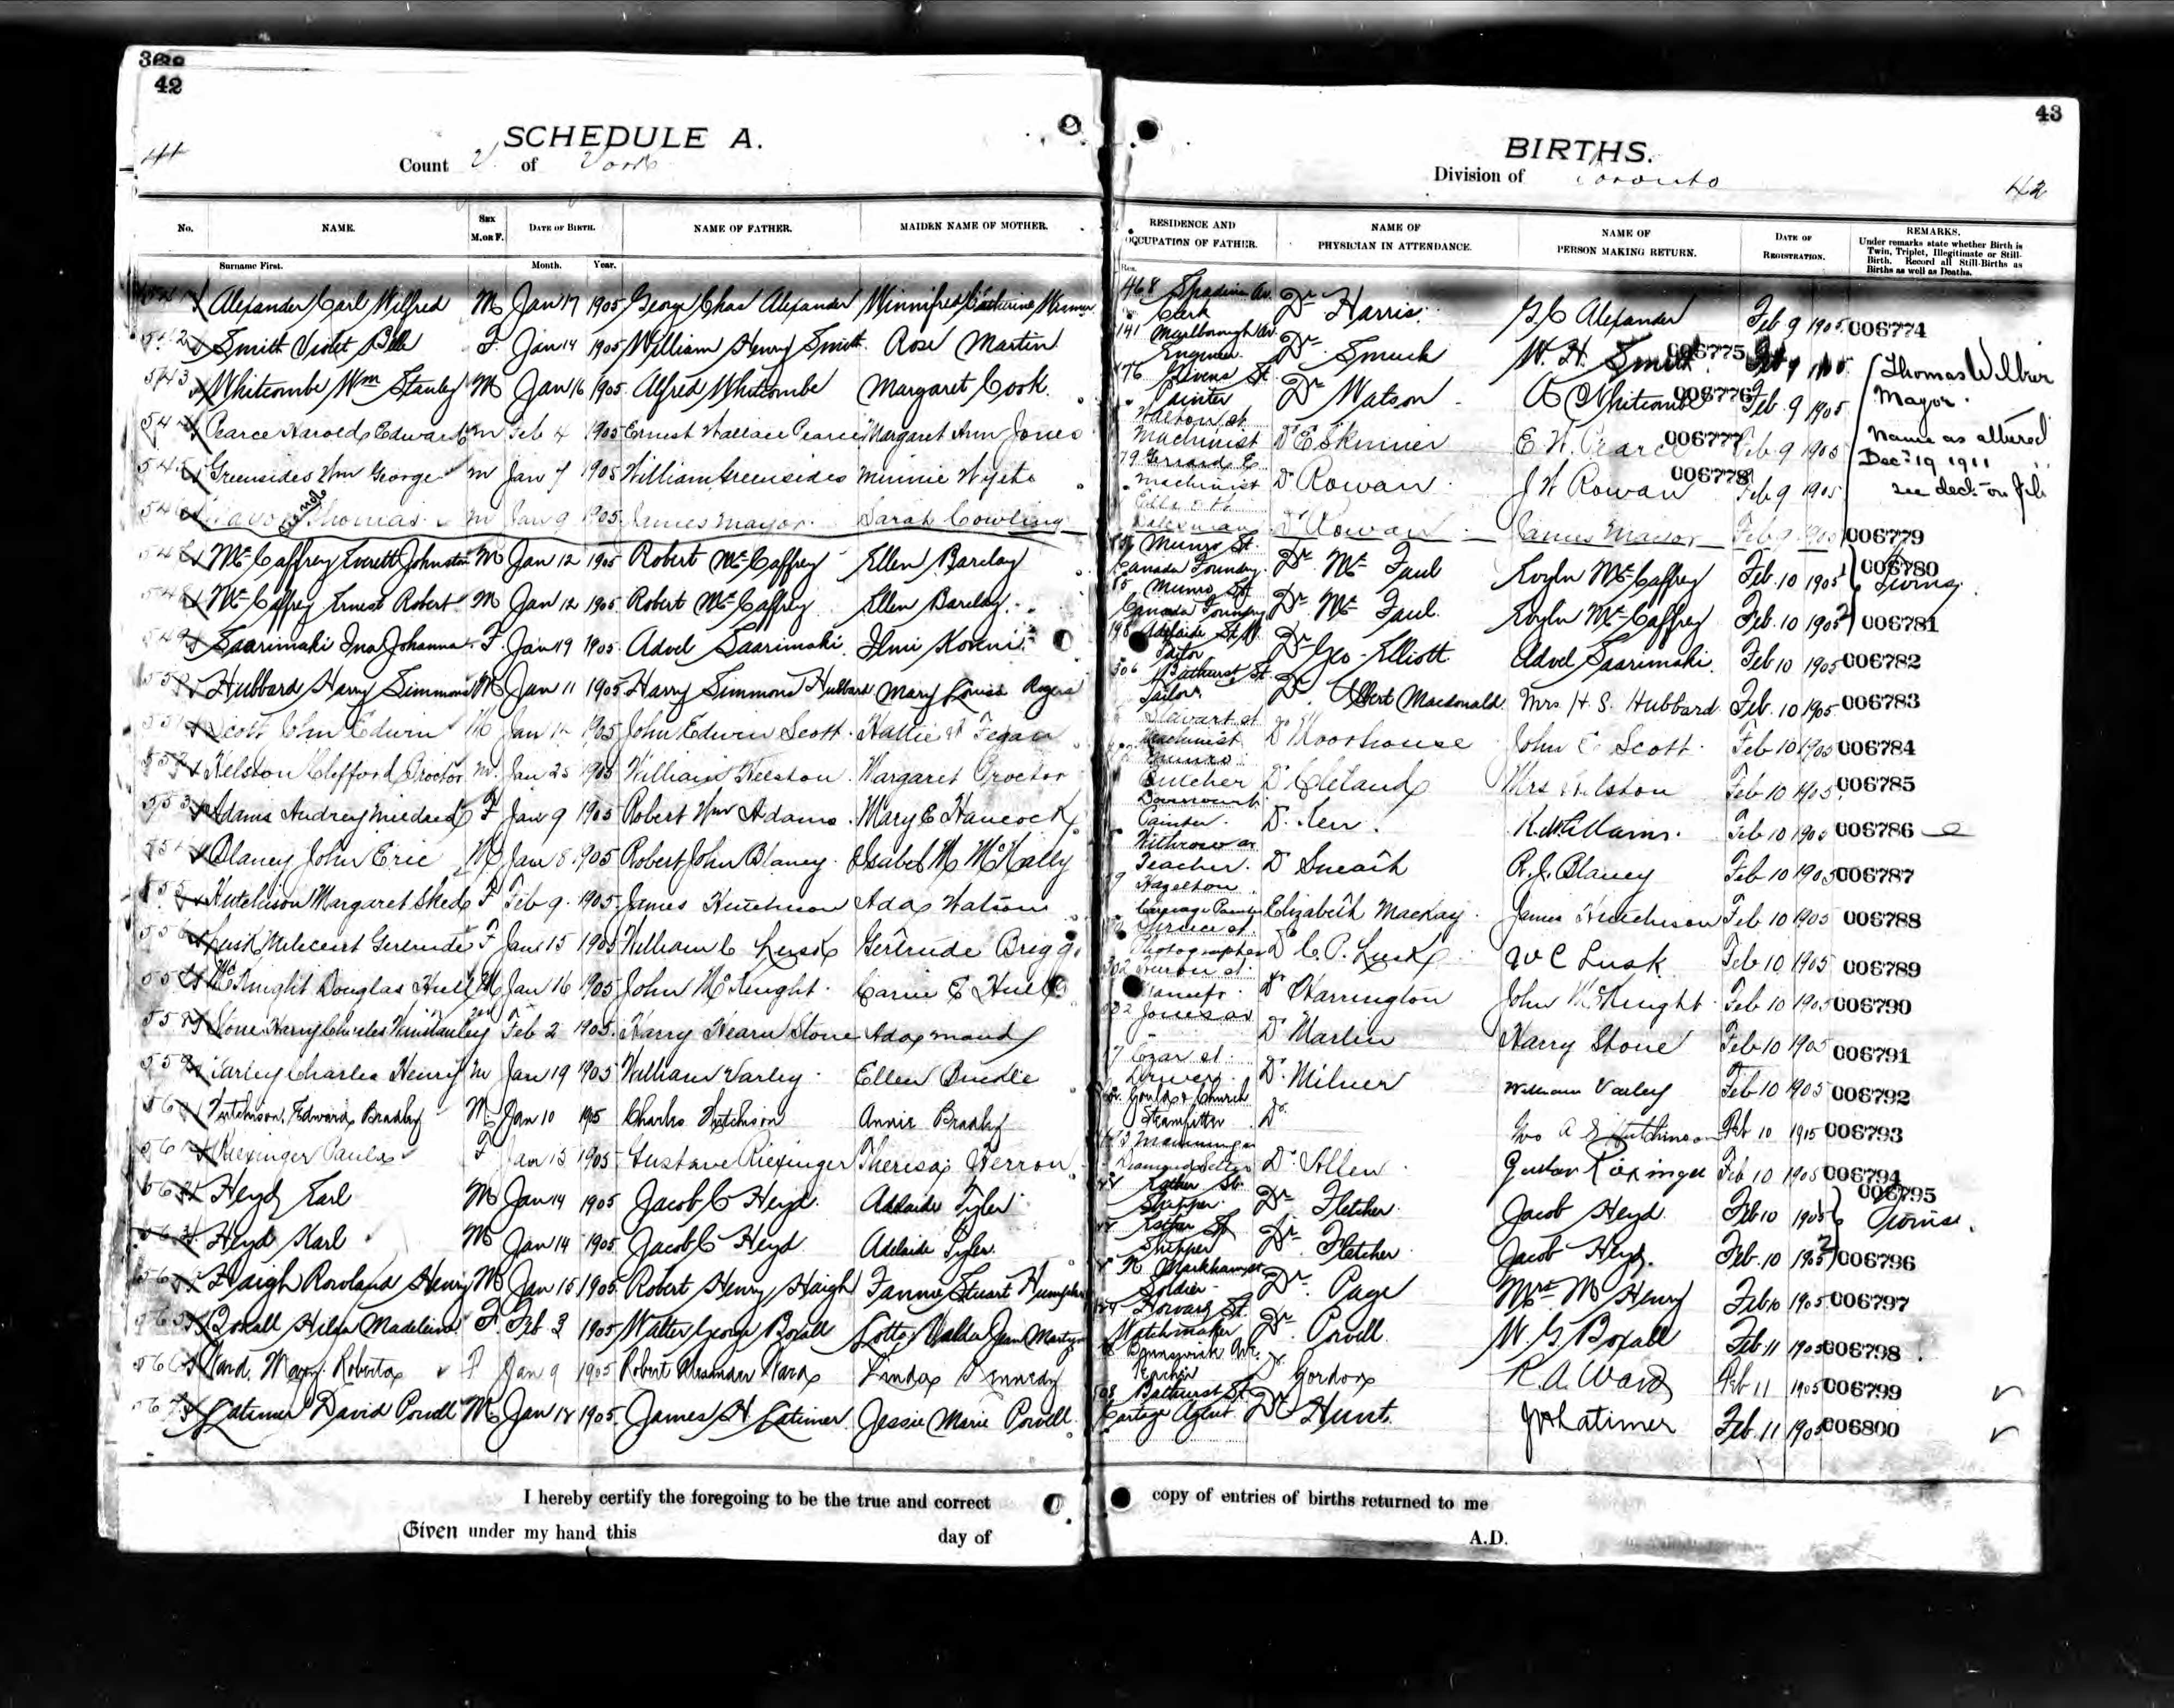 42
43
SCHEDULE A.
BIRTHS.
County of York
Division of Toronto
42
No. NAME. SEX M. OR F. DATE OF BIRTH. NAME OF FATHER. MAIDEN NAME OF MOTHER. RESIDENCE AND OCCUPATION OF FATHER. NAME OF PHYSICIAN IN ATTENDANCE. NAME OF PERSON MAKING RETURN. DATE OF REGISTRATION. REMARKS.
Under remarks state whether Birth is Twin, Triplet, Illegitimate or Still-Birth. Record all Still-Births as Births as well as Deaths.
Surname First. Month. Year. Res.
Alexander Carl Wilfred M Jan 17 1905 George Chas Alexander Winnifred Catherine 468 Spadina Av. Clerk Dr Harris G. C Alexander Feb 9 1905 006774
542 Smith Violet Bell F Jan 14 1905 William Henry Smith Rose Martin 141 Marlborough Av. Engineer Dr Smuck W. H. Smith 006775 Feb 9 1905
543 Whitcombe Wm Stanley M Jan 16 1905 Alfred Whitcombe Margaret Cook 176 Givens St Painter Dr Watson A Whitcombe 006776 Feb 9 1905
544 Pearce Harold Edward M Feb 4 1905 Ernest Wallace Pearce Margaret Ann Jones Walton st Machinist Dr E Skinner E. W. Pearce 006777 Feb 9 1905
545 Greensides Wm George M Jan 7 1905 William Greensides Minnie Wyeth 79 Gerrard E Machinist Dr Rowan J W Rowan 006778 Feb 9 1905
546 Thomas M Jan 9 1905 James Mayor Sarah Cowling Dr Rowan James Mayor Feb 9 1905 006779
Thomas Wilbur
Mayor.
Name as altered
Dec. 19 1911
see decl. on file
McCaffrey Everett Johnston M Jan 12 1905 Robert McCaffrey Ellen Barclay 85 Munro St. Canada Foundry Dr McFaul McCaffrey Feb. 10 1905 006780 Twins.
548 McCaffrey Ernest Robert M Jan 12 1905 Robert McCaffrey Ellen Barclay 85 Munro St Canada Foundry Dr McFaul McCaffrey Feb. 10 1905 006781
549 Saarimaki Ina Johanna F. Jan 19 1905 Advel Saarimaki 198 Adelaide St W. Tailor Dr Geo. Elliott Advel Saarimaki Feb 10 1905 006782
550 Hubbard Harry Simmons M Jan 11 1905 Harry Simmons Hubbard Mary Louisa Rogers 306 Bathurst St. Tailor Dr Albert Macdonald Mrs H. S. Hubbard Feb. 10 1905 006783
551 Scott John Edwin M Jan 1905 John Edwin Scott Hattie Fegan Machinist Dr Moorhouse John E Scott Feb 10 1905 006784
552 Kelston Clifford Proctor M. Jan 25 1905 William Kelston Margaret Proctor Butcher Dr Cleland Mrs Kelston Feb 10 1905 006785
553 Adams Audrey Mildred F Jan 9 1905 Robert Wm Adams Mary E Hancock Painter Dr Feb 10 1905 006786
Blaney John Eric M Jan 8 1905 Robert John Blaney Isabel M McNally Withrow av Teacher Dr Sneath R. J. Blaney Feb 10 1905 006787
555 Hutchison Margaret Sked F Feb 9 1905 James Hutchison Ada Watson Hazelton Carriage Painter Elizabeth Mackay James Hutchison Feb 10 1905 006788
556 Lusk Milecent Gertrude F Jan 15 1905 William C Lusk Gertrude Briggs Spruce st. Photographer Dr C. P. Lusk W C Lusk Feb 10 1905 006789
McKnight Douglas Hull M Jan 16 1905 John McKnight Carrie E Hull Huron st. Dr Harrington John McKnight Feb 10 1905 006790
558 Stone Harry Charles Winstanley Feb 2 1905 Harry Hearn Stone Ada Maud Jones av Dr Martin Harry Stone Feb 10 1905 006791
559 Varley Charles Henry M Jan 19 1905 William Varley Ellen Czar st. Driver Dr Milner William Varley Feb 10 1905 006792
Hutchison, Edward Bradley M Jan 10 1905 Charles Hutchison Annie Bradley Gould & Church Steamfitter Dr A E Hutchinson Feb 10 1905 006793
561 Riexinger Paula F Jan 13 1905 Gustave Riexinger Theresa Herron Manning av Diamond Setter Dr Allen Gustav Riexinger Feb 10 1905 006794
Heyd Earl M Jan 14 1905 Jacob C Heyd Adelaide Tyler Shipper Dr Fletcher Jacob Heyd Feb 10 1905 006795 Twins.
Heyd Karl M Jan 14 1905 Jacob C Heyd Adelaide Tyler Shipper Dr Fletcher Jacob Heyd. Feb. 10 1905 006796
Haigh Rowland Henry M Jan 15 1905 Robert Henry Haigh Fannie Stuart N Markham st Soldier Dr Page Mrs M Henry Feb 10 1905 006797
Boxall Hilda Madeline F. Feb 3 1905 Walter George Boxall Howard St. Watchmaker Dr Powell W. G Boxall Feb 11 1905 006798
Ward, Mary Roberta F Jan 9 1905 Robert Alexander Ward Linda Kennedy Brunswick Ave. Teacher Dr Gordon R. A. Ward Feb 11 1905 006799
567 Latimer David Powell M Jan 18 1905 James H Latimer Jessie Marie Powell 508 Bathurst St. Cartage Agent Dr Hunt J H Latimer Feb. 11 1905 006800
I hereby certify the foregoing to be the true and correct copy of entries of births returned to me
Given under my hand this day of A.D.